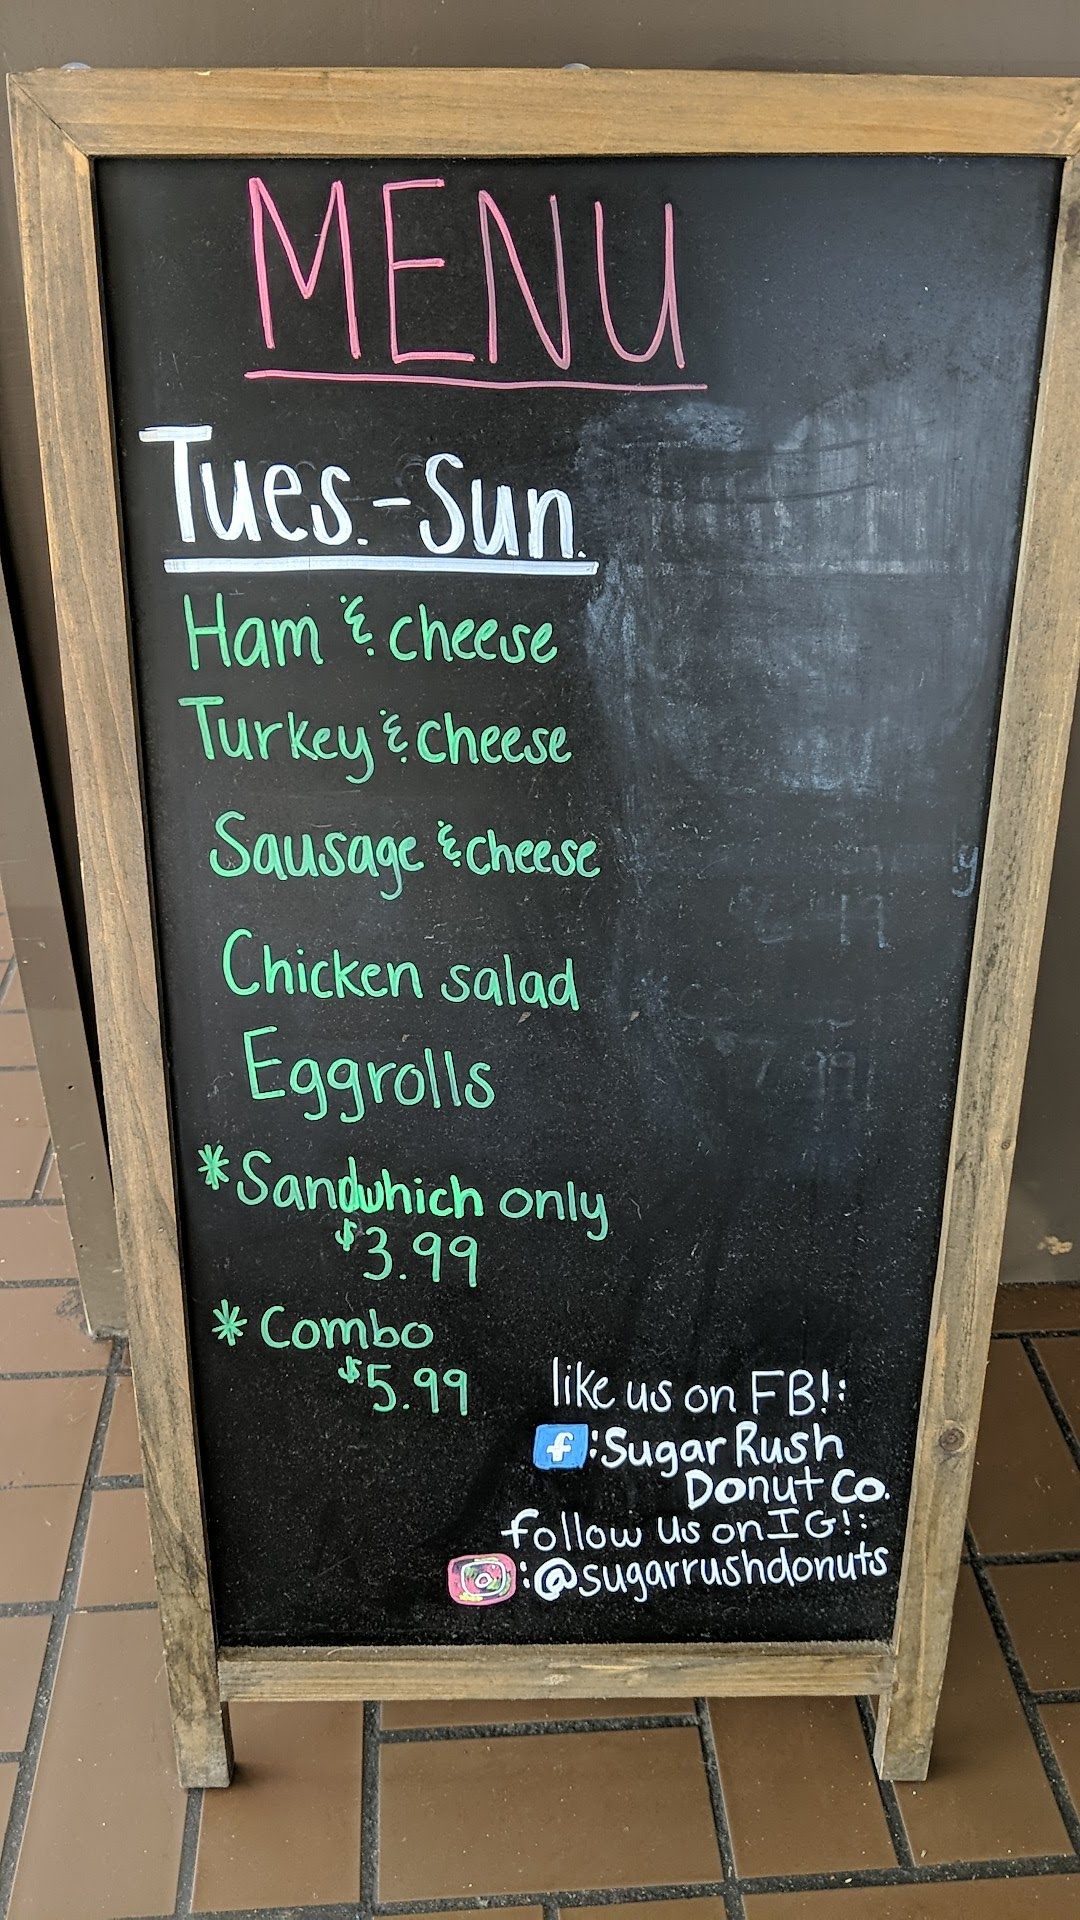 MENU
Tues.-Sun.
Ham & cheese
Turkey & cheese
Sausage & cheese
Chicken salad
Eggrolls
*Sandwhich only
$3.99
*Combo
$5.99
like us on FB!:
f:Sugar Rush
Donut Co.
follow us on IG!:
:@sugarrushdonuts